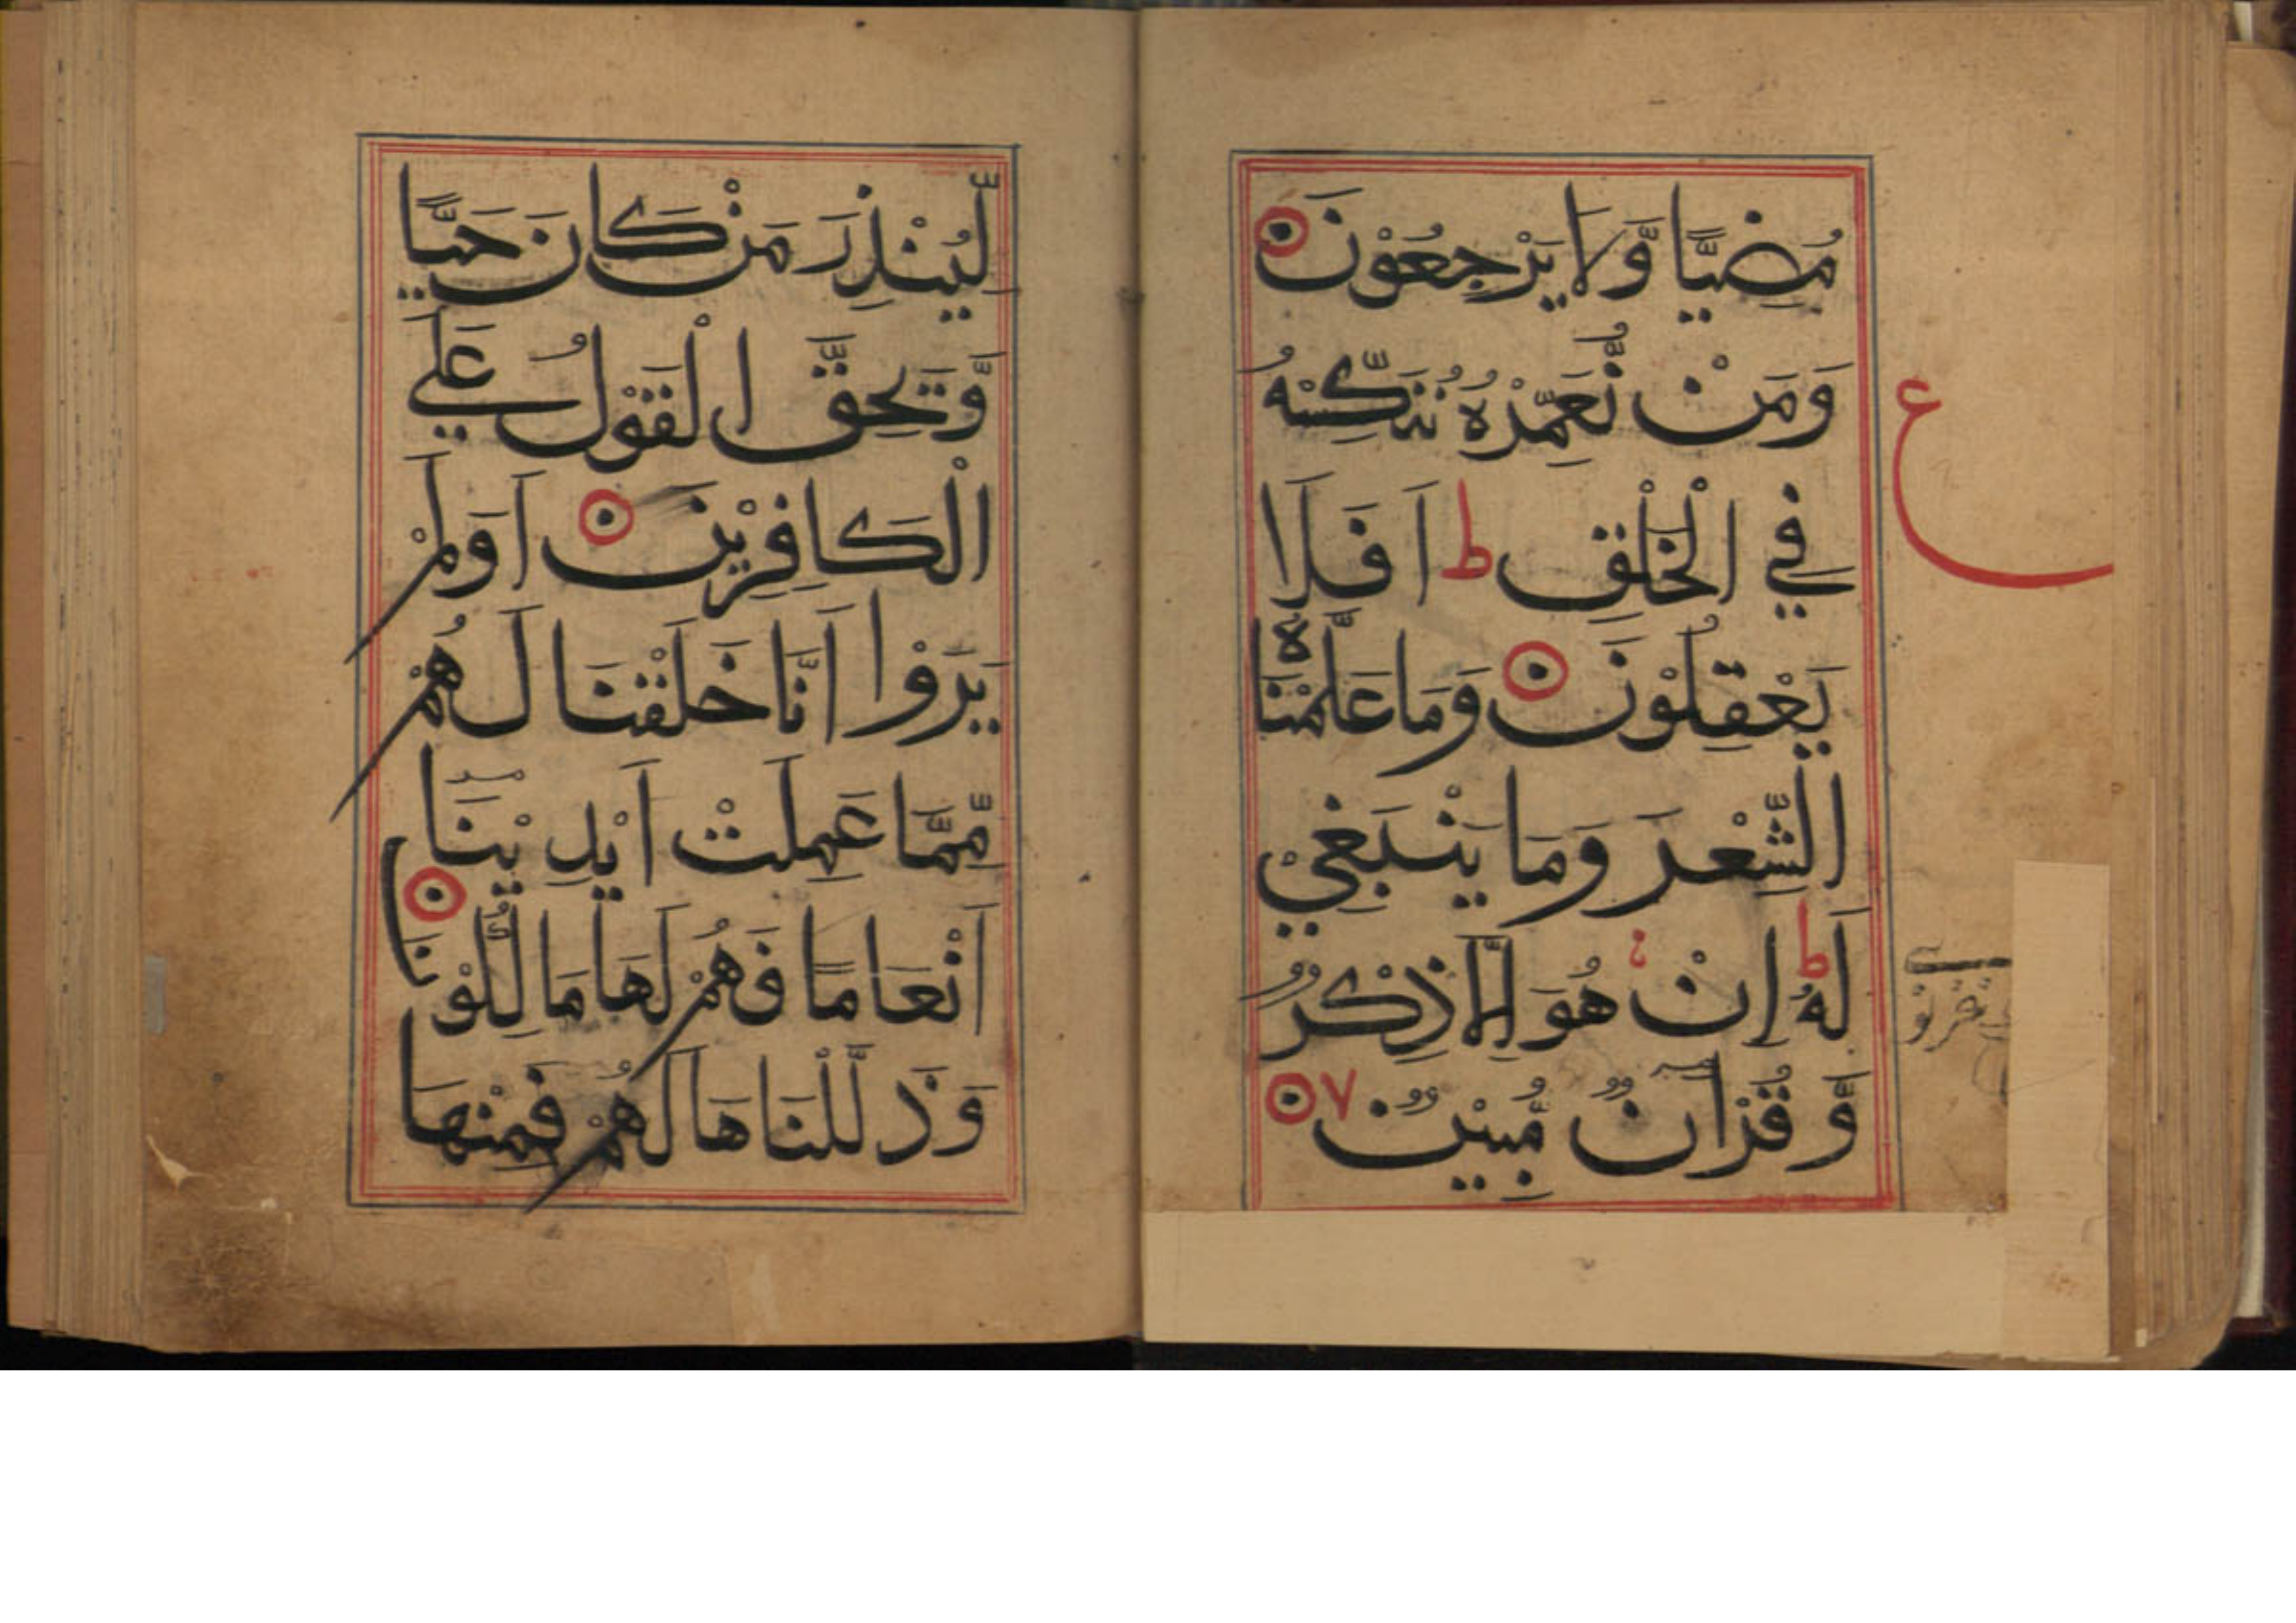 مُضِيًّا وَّلَا يَرْجِعُوْنَ
وَمَنْ نُّعَمِّرْهُ نُنَكِّسْهُ
فِي الْخَلْقِ ط اَفَلَا
يَعْقِلُوْنَ وَمَا عَلَّمْنَاهُ
الشِّعْرَ وَمَا يَنْبَغِيْ
لَهُ ط اِنْ هُوَ اِلَّا ذِكْرٌ
وَّقُرْاٰنٌ مُّبِيْنٌ ٧
ع
لِّيُنْذِرَ مَنْ كَانَ حَيًّا
وَّيَحِقَّ الْقَوْلُ عَلَي
الْكَافِرِيْنَ اَوَلَمْ
يَرَوْا اَنَّا خَلَقْنَا لَهُمْ
مِّمَّا عَمِلَتْ اَيْدِيْنَا
اَنْعَامًا فَهُمْ لَهَا مَالِكُوْنَ
وَذَلَّلْنَاهَا لَهُمْ فَمِنْهَا